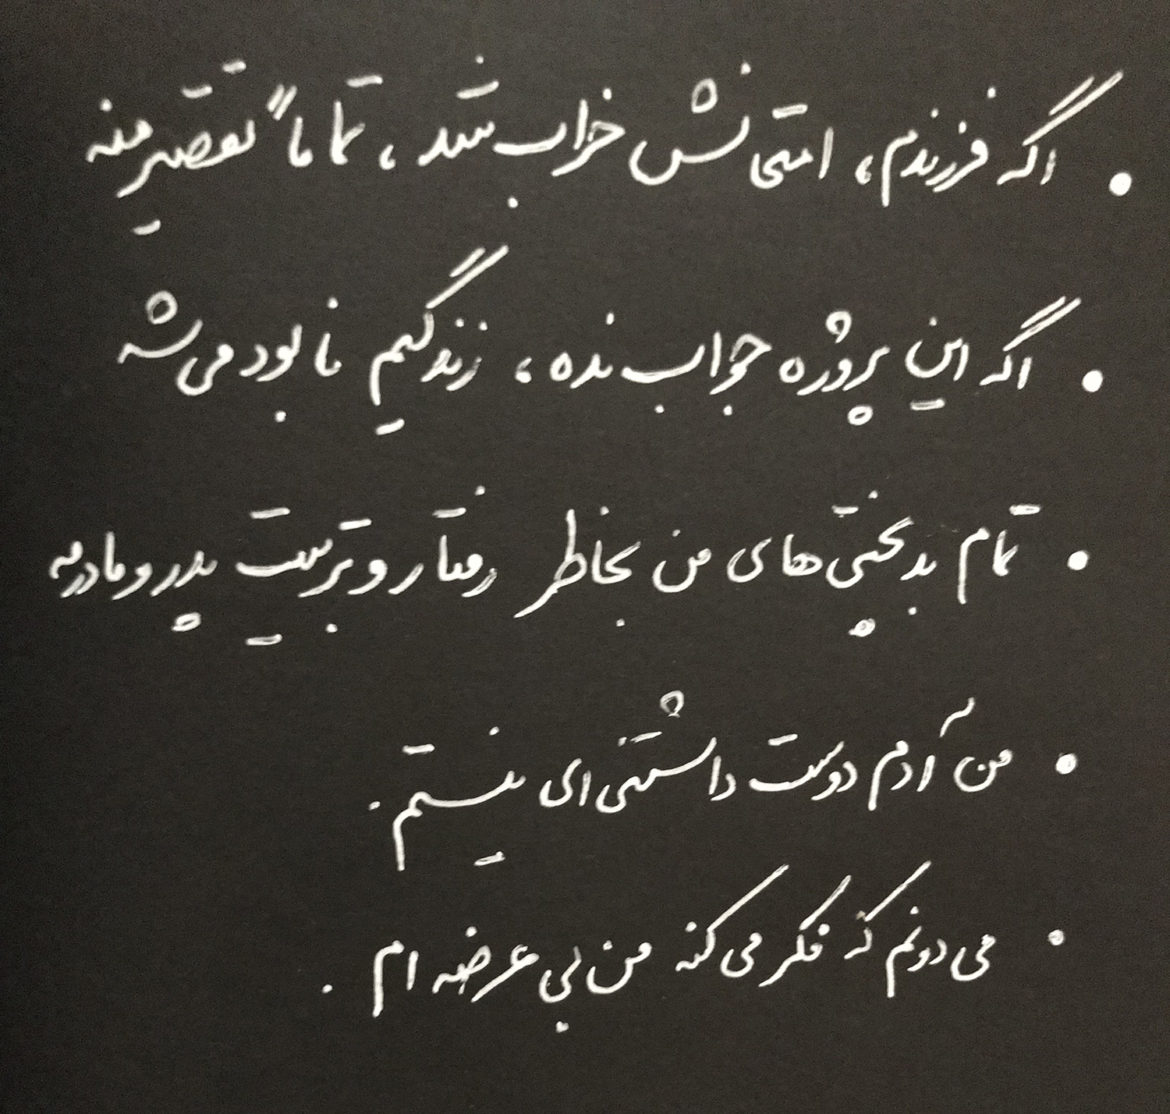 • اگه فرزندم، امتحانش خراب بشد، تماماً تقصیر منه
• اگه این پروژه جواب نده، زندگیم نابود می‌شه
• تمام بدبختی‌های من بخاطر رفتار و تربیت پدر و مادرمه
• من آدم دوست داشتنی‌ای نیستم.
• می‌دونم که فکر می‌کنه من بی‌عرضه‌ام.